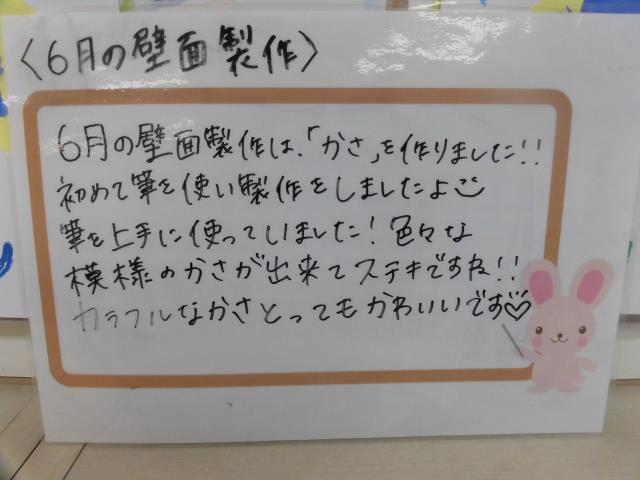 〈6月の壁面製作〉
6月の壁面製作は、「かさ」を作りました!!
初めて筆を使い製作をしましたよ
筆を上手に使っていました!色々な
模様のかさが出来てステキですね!!
カラフルなかさとってもかわいいです♡